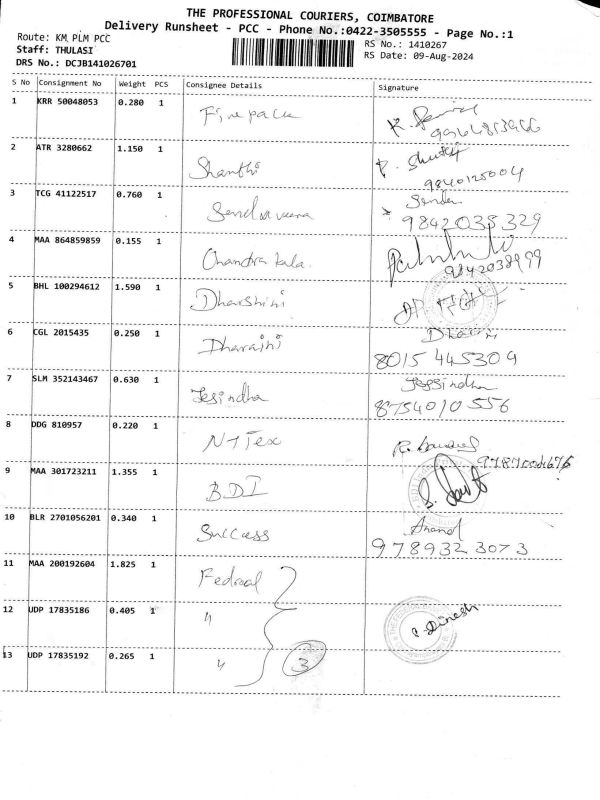 THE PROFESSIONAL COURIERS, COIMBATORE
Delivery Runsheet - PCC - Phone No.:0422-3505555 - Page No.:1
Route: KM PLM PCC
Staff: THULASI
DRS No.: DCJB141026701
RS No.: 1410267
RS Date: 09-Aug-2024
S No Consignment No Weight PCS Consignee Details Signature
1 KRR 50048053 0.280 1 Fine pack
2 ATR 3280662 1.150 1 Shanthi
9840125004
3 TCG 41122517 0.760 1
9842035329
4 MAA 864859859 0.155 1 Chandra kala.
9842038999
5 BHL 100294612 1.590 1 Dharshini
6 CGL 2015435 0.250 1 Dharaini
8015 445309
7 SLM 352143467 0.630 1 Jesindha
Jessindha
8754010556
8 DDG 810957 0.220 1 N-Tex
9 MAA 301723211 1.355 1 BDI
10 BLR 2701056201 0.340 1 Success Anand
9789323073
11 MAA 200192604 1.825 1 Fedral
12 UDP 17835186 0.405 1 " C. Dinesh
13 UDP 17835192 0.265 1 " 3